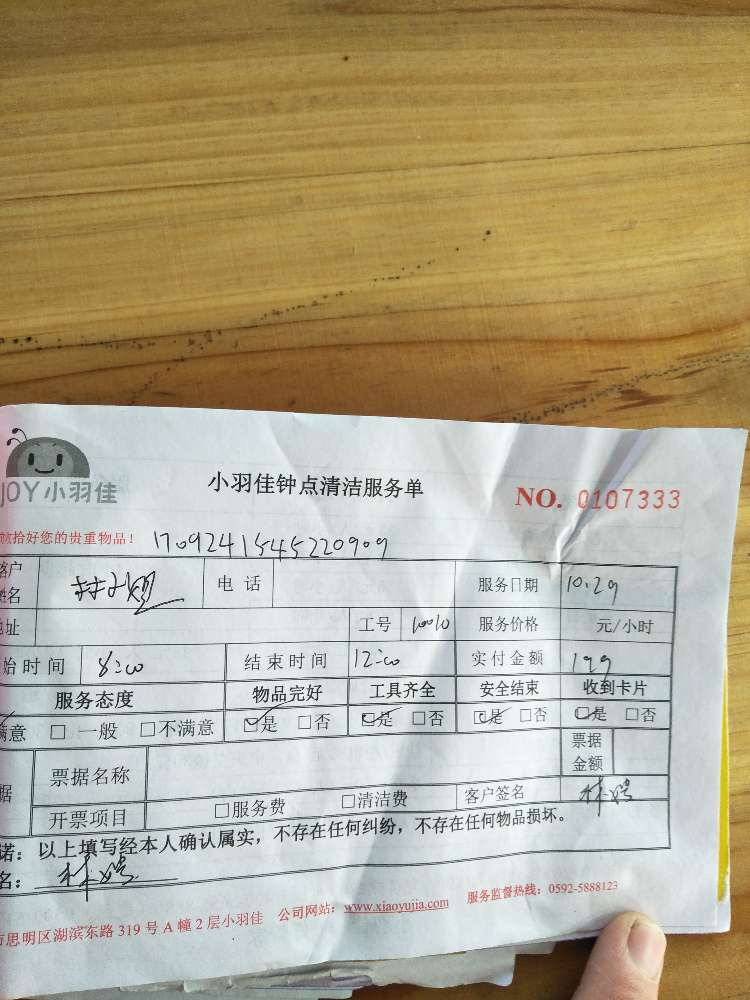 JOY小羽佳
小羽佳钟点清洁服务单
NO. 0107333
拾好您的贵重物品! 1709241545220909
客户
姓名 电话 服务日期 10.29
地址 工号 10010 服务价格 元/小时
始时间 8:00 结束时间 12:00 实付金额 199
服务态度 物品完好 工具齐全 安全结束 收到卡片
满意 □ 一般 □不满意 ☑是 □否 ☑是 □否 ☑是 □否 ☑是 □否
据 票据名称 票据
金额
开票项目 □服务费 □清洁费 客户签名
诺：以上填写经本人确认属实，不存在任何纠纷，不存在任何物品损坏。
名：
市思明区湖滨东路 319 号 A 幢 2 层小羽佳 公司网站：www.xiaoyujia.com 服务监督热线：0592-5888123